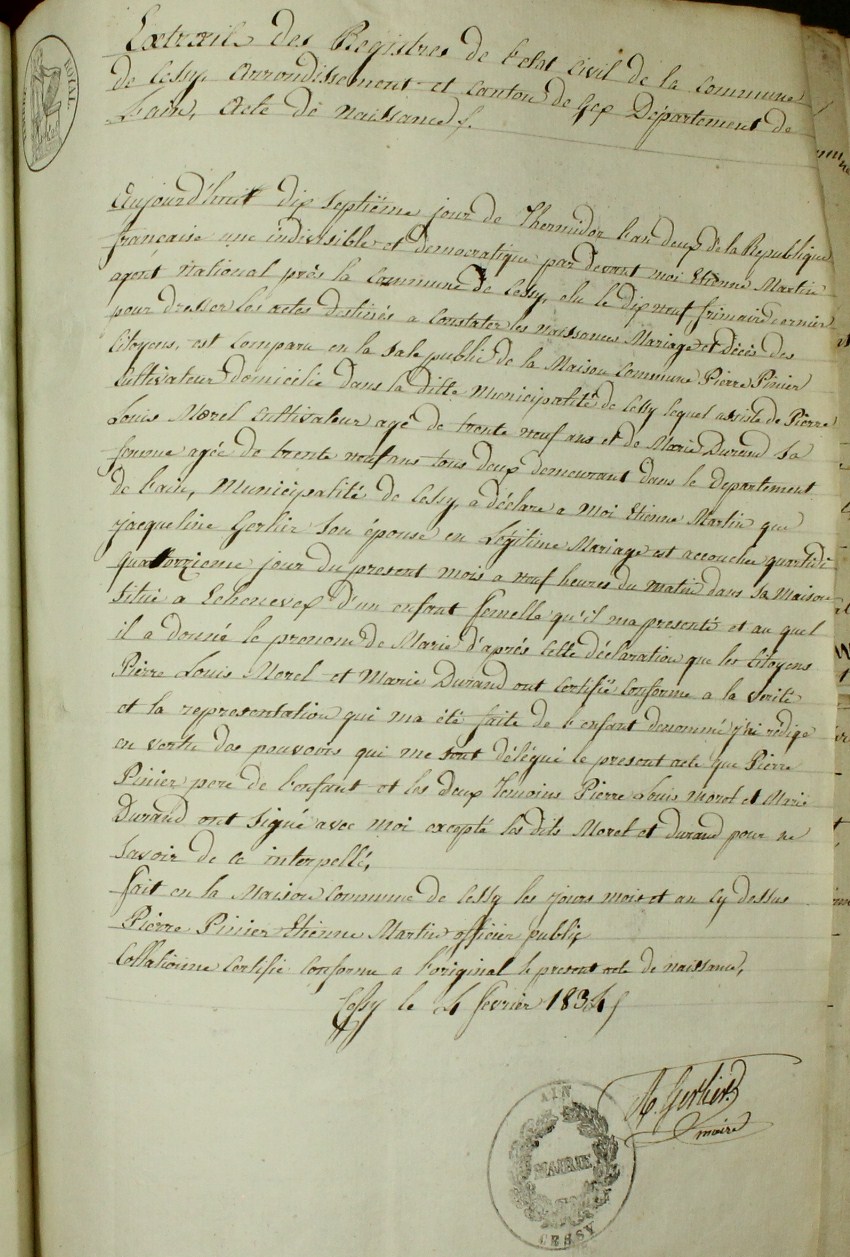 Extrait des Registres de l'etat civil de la commune
de Cessy, arrondissement et canton de Gex Département de
l'ain, Acte de naissance.
Aujourd'huit dix septième jour de Thermidor l'an deux de la Republique
française une indivisible et democratique par devant moi Etienne Martin
agent national près la commune de Cessy, elu le dix neuf frimaire dernier
pour dresser les actes destinés a constater les naissances Mariage et Décès des
Citoyens, est comparu en la sale public de la Maison commune Pierre Pinier
Cultivateur domicilié dans la ditte Municipalité de Cessy lequel assisté de Pierre
Louis Morel cultivateur agé de trente neuf ans et de Marie Durand sa
femme agée de trente neuf ans tous deux demeurant dans le departement
de l'ain, Municipalité de Cessy, a déclare a moi Etienne Martin que
jacqueline Gerlier son épouse en Légitime Mariage est accouche quartidi
quatorzieme jour du present mois a neuf heures du matin dans sa Maison
situé a Echenevex d'un enfant femelle qu'il ma presenté et au quel
il a donné le prenom de Marie d'aprés cette déclaration que les Citoyens
Pierre Louis Morel et Marie Durand ont certifié conforme a la verité
et la representation qui ma été faite de l'enfant denommé j'ai rédige
en vertu des pouvoirs qui me sont délégué le present acte que Pierre
Pinier pere de l'enfant et les deux temoins Pierre Louis Morel et Marie
Durand ont signé avec moi excepté les dits Morel et durand pour ne
savoir de ce interpellé,
fait en la Maison commune de Cessy les jours mois et an cy dessus
Pierre Pinier Etienne Martin officier public
Collationne certifie conforme a l'original le present acte de naissance,
Cessy le 4 fevrier 1834
A. Gerlier
maire
AIN
MAIRIE
CESSY
ROYAL